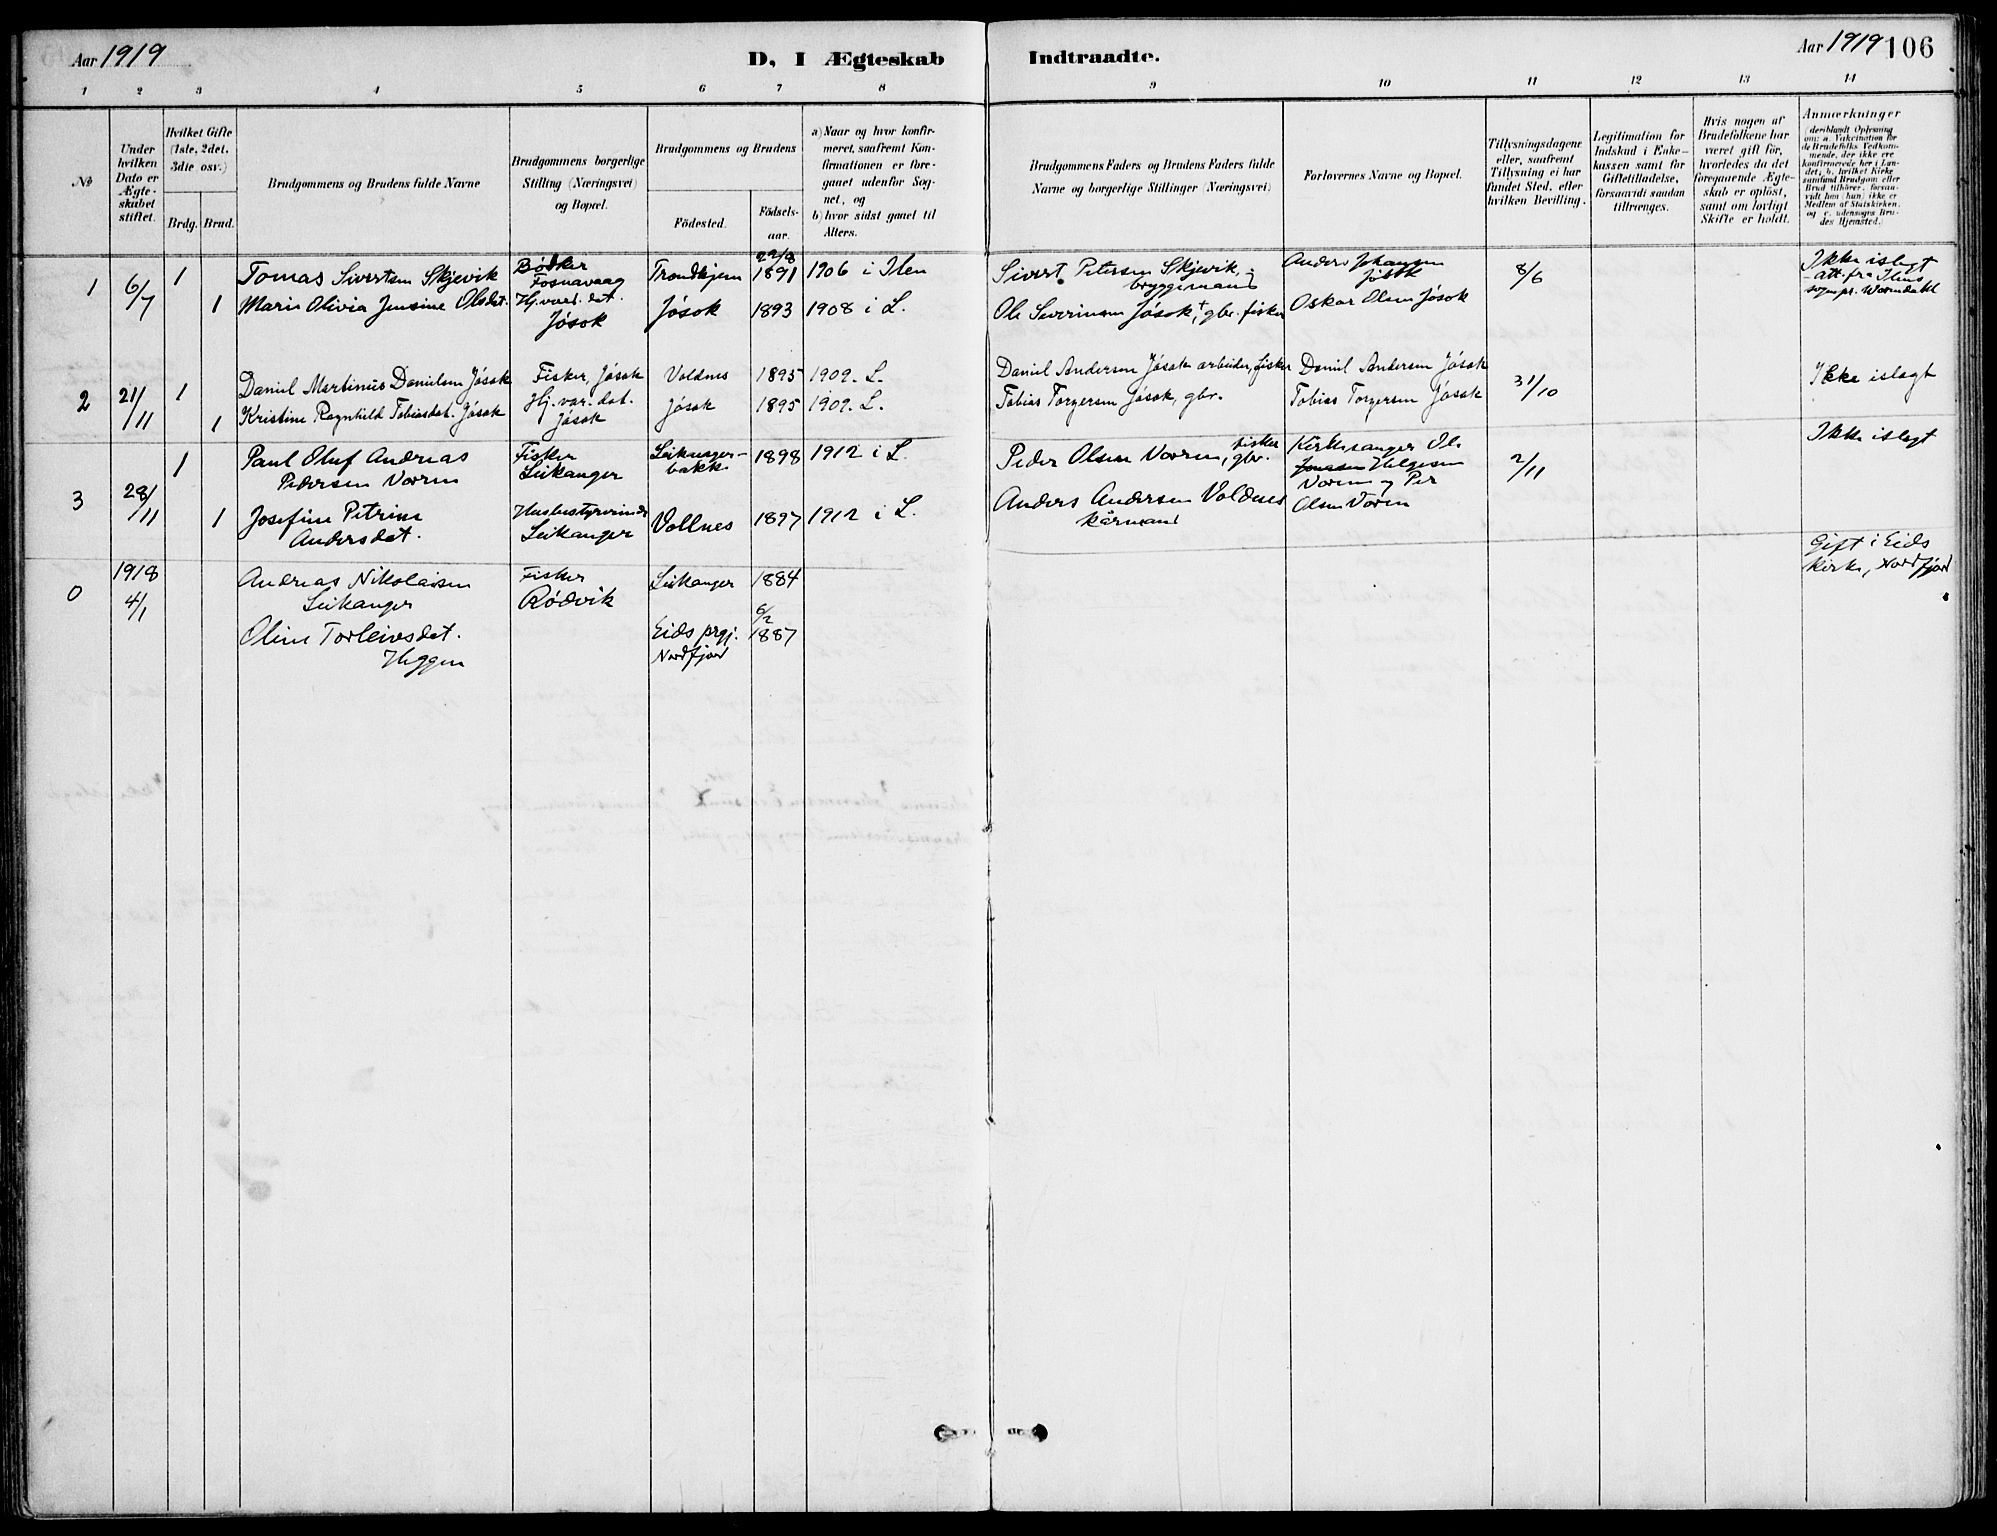 Aar 1919
D, I Ægteskab Indtraadte.
Aar 1919 106
1 2 3 4 5 6 7 8 9 10 11 12 13 14
№
Under hvilken Dato er Ægteskabet stiftet.
Hvilket Gifte (1ste, 2det, 3die osv.)
Brdg. Brud.
Brudgommens og Brudens fulde Navne
Brudgommens borgerlige Stilling (Næringsvei) og Bopæl.
Brudgommens og Brudens
Födested.
Födsels-aar.
a) Naar og hvor konfirmeret, saafremt Konfirmationen er foregaaet udenfor Sognet, og
b) hvor sidst gaaet til Alters.
Brudgommens Faders og Brudens Faders fulde Navne og borgerlige Stillinger (Næringsvei)
Forlovernes Navne og Bopæl.
Tillysningsdagene eller, saafremt Tillysning ei har fundet Sted, efter hvilken Bevilling.
Legitimation for Indskud i Enkekassen samt for Giftetilladelse, forsaavidt saadan tiltrænges.
Hvis nogen af Brudefolkene har været gift för, hvorledes da det foregaaende Ægteskab er oplöst, samt om lovligt Skifte er holdt.
Anmærkninger
(deriblandt Oplysning om: a. Vakcination for de Brudefolks Vedkommende, der ikke ere konfirmerede her i Landet; b. hvilket Kirkesamfund Brudgom eller Brud tilhörer, forsaavidt han (hun) ikke er Medlem af Statskirken, og c. udensogns Brudes Hjemsted.)
1 6/7 1 Tomas Sivertsen Skjevik Bødker Fosnavaag Trondhjem 22/8 1891 1906 i Ilen Sivert Petersen Skjevik, bryggemand Anders Johansen Jøsok 8/6 Ikke islegt
att. fra Ilens sognepr.
1 Marie Olivia Jensine Olsdet. Hj.vær. det. Jøsok Jøsok 1893 1908 i L. Ole Severinsen Jøsok, gbr. fisker Oskar Olsen Jøsok
2 21/11 1 Daniel Martinus Danielsen Jøsok Fisker, Jøsok Voldnes 1895 1909. L. Daniel Andersen Jøsok arbeider, fisker Daniel Andersen Jøsok 31/10 Ikke islegt
1 Kristine Ragnhild Tobiasdet. Jøsok Hj. vær. det. Jøsok Jøsok 1895 1909. L. Tobias Torgersen Jøsok, gbr. Tobias Torgersen Jøsok
3 28/11 1 Paul Oluf Andreas Pedersen Voren Fisker Leikanger Leikanger-bakk 1898 1912 i L. Peder Olsen Voren, fisker gbr. Kirkesanger Ole Helgesen Voren og Per Olsen Voren 2/11 Ikke islegt
1 Josefine Petrine Andersdet. Husbestyrerinde Leikanger Vollnes 1897 1912 i L. Anders Andersen Voldnes kårmand
0 1918 4/1 Andreas Nikolaisen Leikanger Fisker Rødvik Leikanger 1884 Gift i Eids kirke, Nordfjord
Oline Torleivsdet. Heggen Eids prgj. Nordfjord 6/2 1887